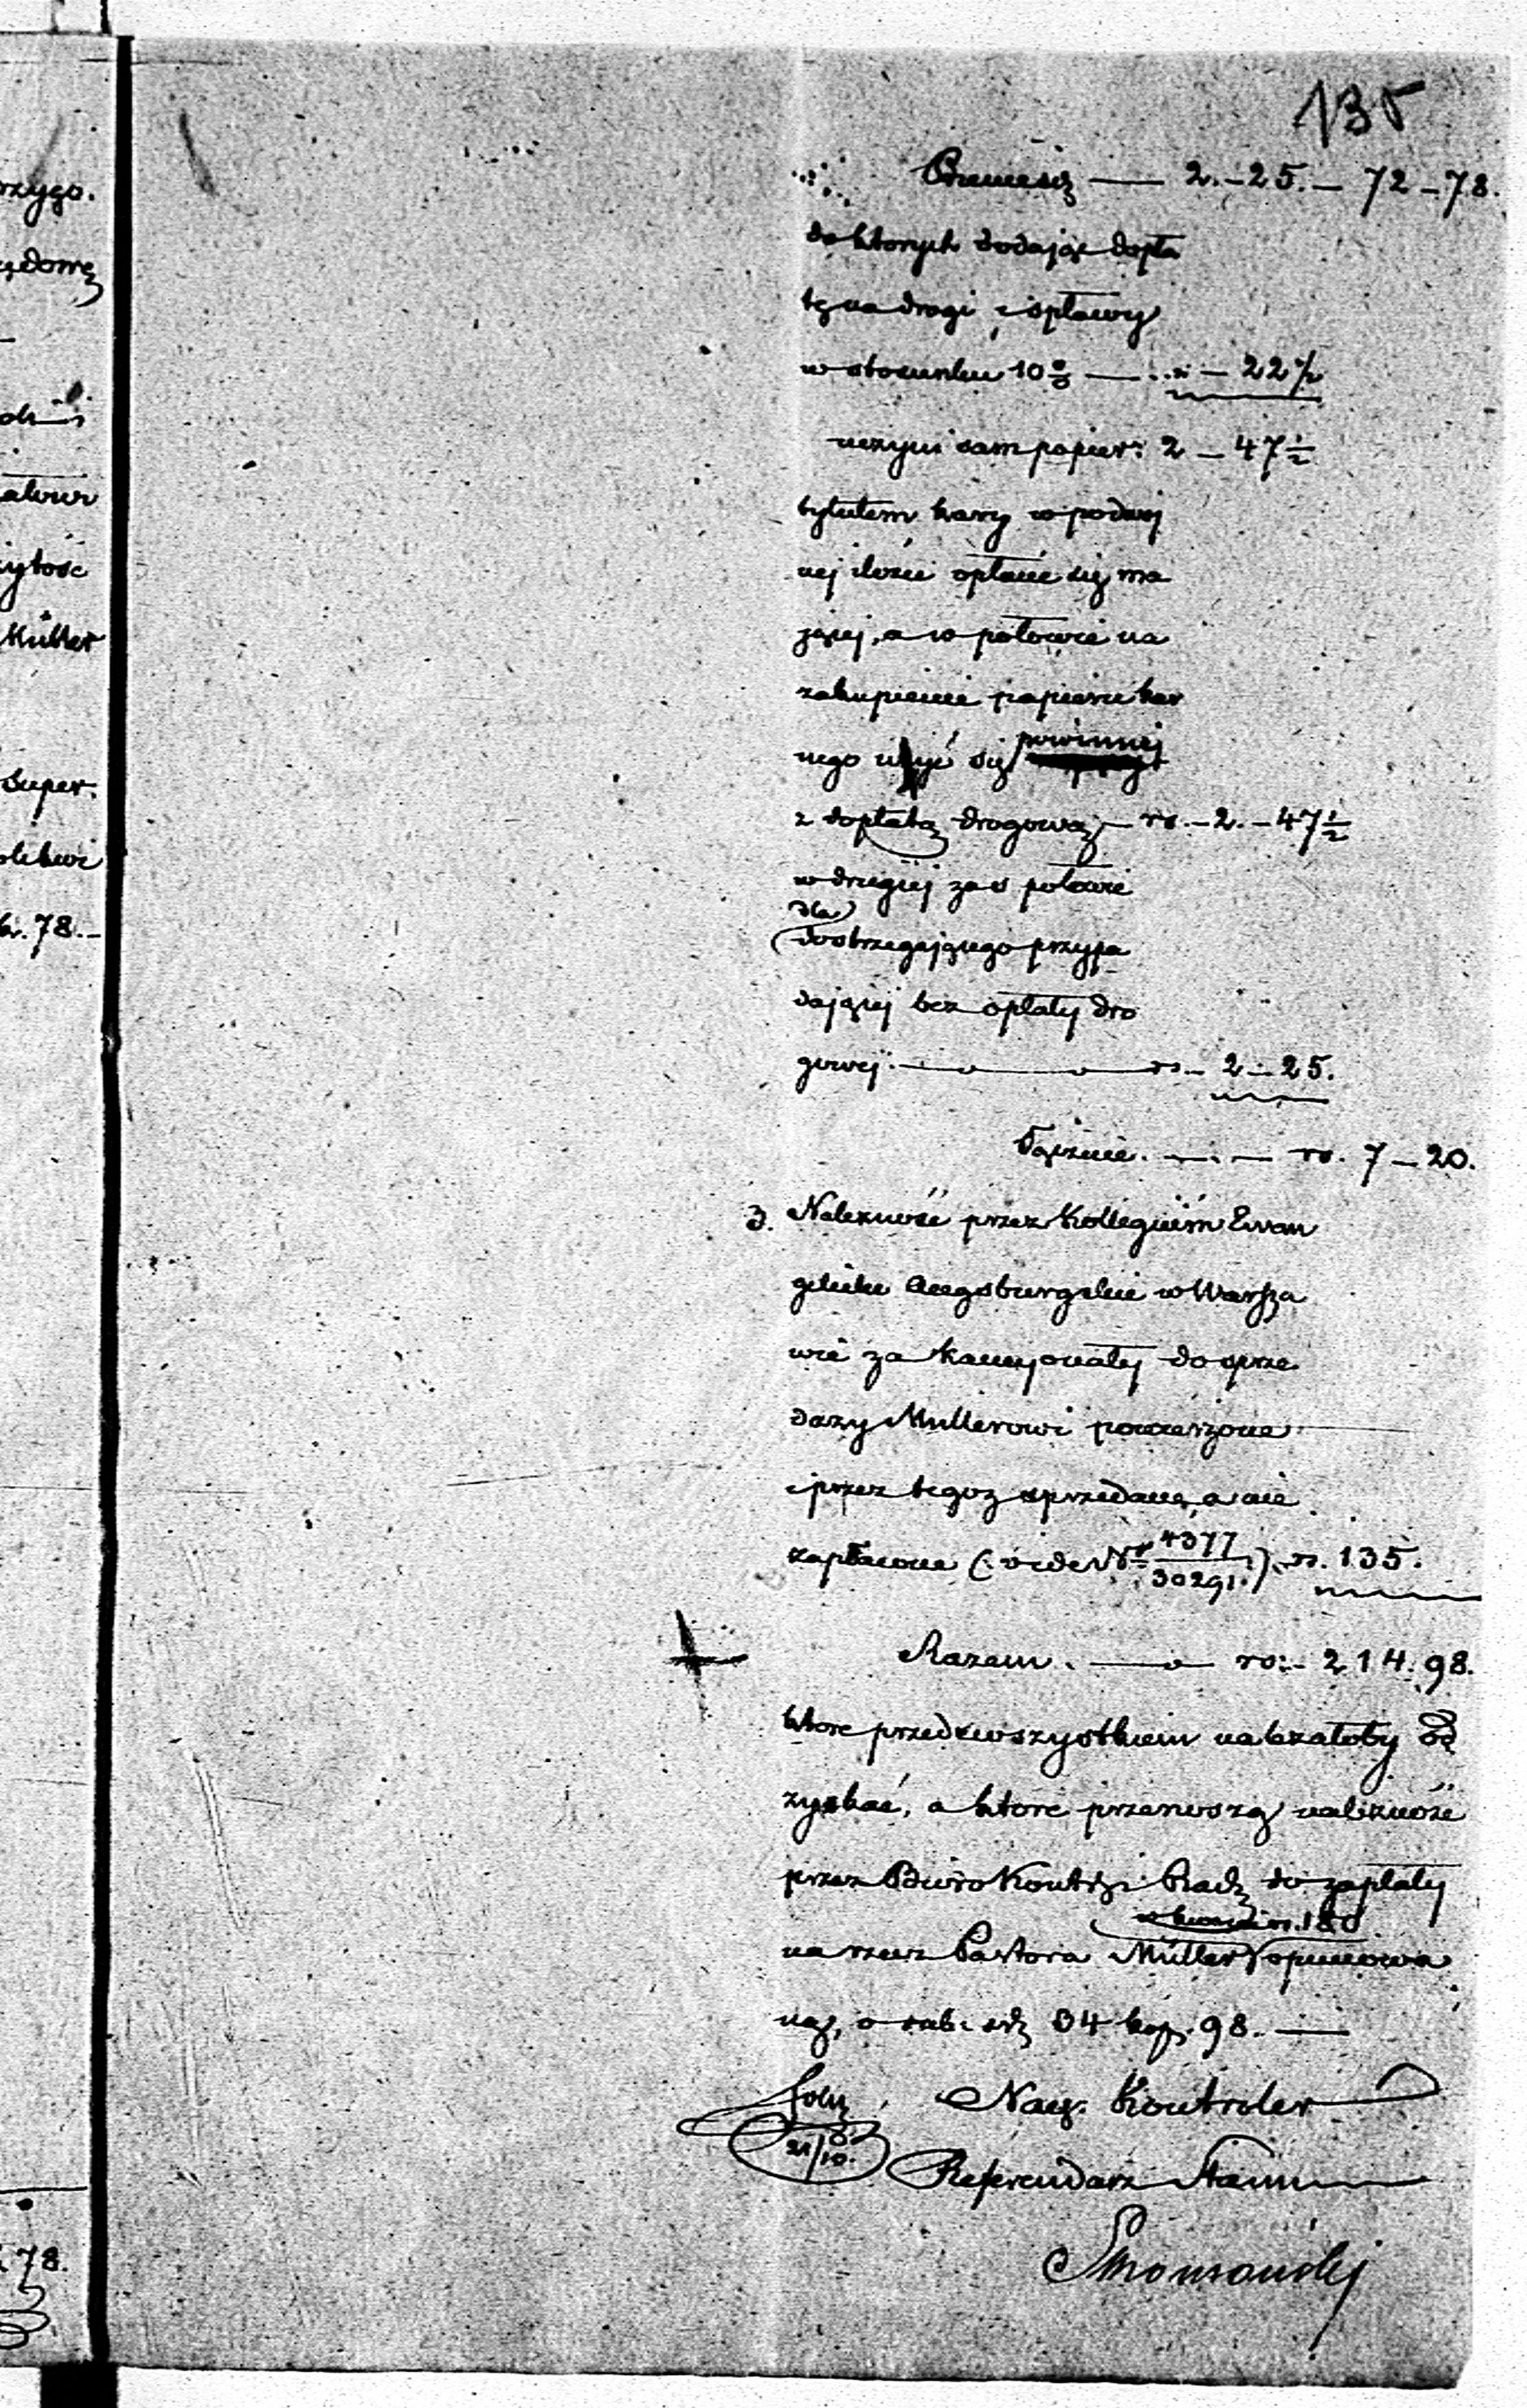 135
Przenieść — 2.–25. – 72–78.
do ktorych dodając dopła
tę na drogi i spławy
w stosunku 10 % — – 22½
uczyni sam papier: 2 – 47½
tytułem kary w podwój
nej ilości opłacić się ma
jącej, a w połowie na
zakupienie papieru kar
nego użyć się powinnej
z dopłatą drogową – rs. – 2. – 47½
w drugiej zaś połowie
dla
dostrzegającego przypa
dającej bez opłaty dro
gowej. — rs. – 2 – 25.
Łącznie. — rs. 7 – 20.
3. Należność przez Kollegium Ewan
gelicko Augsburgskie w Warsza
wie za do sprze
daży Mullerowi powierzone
i przez tegoż sprzedane, a nie
zapłacone (: vide Nr 4377/30291 :) rs. 135.
Razem. — rs: – 214. 98.
ktore przedewszystkiem należałoby od
zyskać, a ktore przenoszą należność
przez Biuro Kontr: do zapłaty
w kwocie rs. 180
na rzecz Pastora Müller opiniowa
ną, o rub: srb. 34 kop. 98. —
Nacz. Kontroler
21/10.
Referendarz Stanu